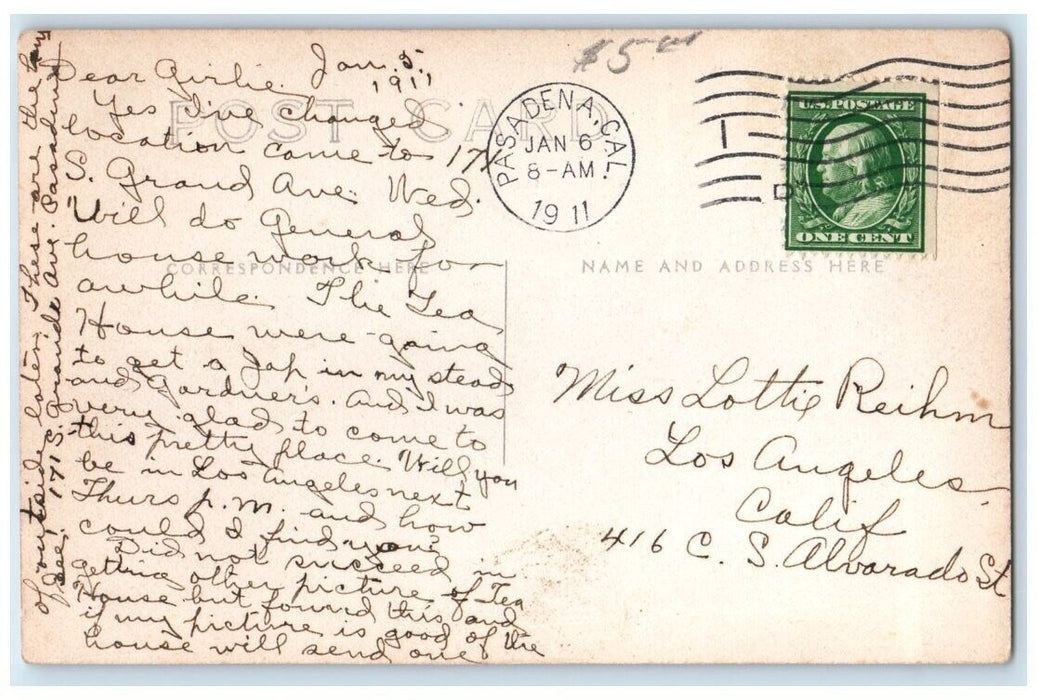 $5.00
POST CARD
CORRESPONDENCE HERE
NAME AND ADDRESS HERE
PASADENA, CAL.
JAN 6
8-AM
1911
1
D
U.S. POSTAGE
ONE CENT
Jan. 5.
1911
Dear Girlie.
Yes I've changed
location came to 171
S. Grand Ave. Wed.
Will do general
house work for
awhile. The Tea
House were going
to get a Jap in my stead
and Gardner's. And I was
very glad to come to
this pretty place. Will you
be in Los Angeles next
Thurs p.m. and how
could I find you?
Did not succeed in
getting other picture of Tea
House but found this and
if my picture is good of the
house will send one
of outside later. These are the
see. 171 S. Grande Ave. Pasadena
Miss Lottie Reihm
Los Angeles
Calif
416 C. S. Alvarado St